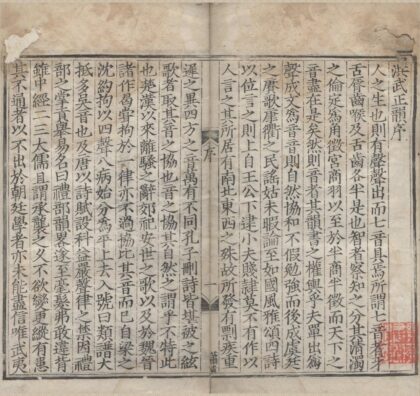 洪武正韻序
人之生也則有聲聲出而七音具焉所謂七音者牙
舌脣齒喉及舌齒各半是也智者察知之分其清濁
之倫定爲角徵宮商羽以至於半商半徵而天下之
音盡在是矣然則音者其韻書之權輿乎夫單出爲
聲成文爲音音則自然協和不假勉強而後成虞廷
之賡歌康衢之民謠姑未暇論至如國風雅頌四詩
以位言之則上自王公下逮小夫賤隸莫不有作以
人言之其所居有南北東西之殊故所發有剽疾重
序
一
遲之異四方之音萬有不同孔子刪詩皆堪被之絃
歌者取其音之協也音之協其自然之謂乎不特此
也楚漢以來離騷之辭郊祀安世之歌以及於魏晉
諸作曷嘗拘於一律亦不過協比其音而已自梁之
沈約拘以四聲八病始分爲平上去入號曰類譜大
抵多吳音也及唐以詩賦設科益嚴聲律之禁因禮
部之掌貢舉易名曰禮部韻畧遂至毫髮弗敢違背
雖中經二三大儒且謂承襲之久不欲變更縱有患
其不通者以不出於朝廷學者亦未能盡信唯武夷